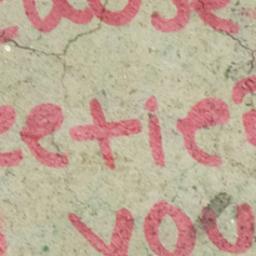 ause
eetie
you